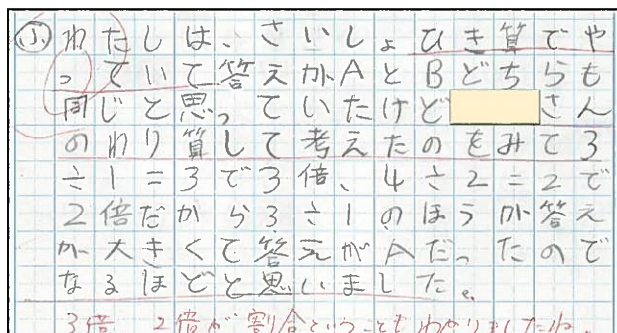 ㋫わたしは、さいしょひき算でや
っていて答えがAとBどちらも
同じと思っていたけどさん
のわり算して考えたのをみて3
÷1=3で3倍、4÷2=2で
2倍だから3÷1のほうが答え
が大きくて答えがAだったので
なるほどと思いました。
3倍、2倍が割合ということもわかりましたね。